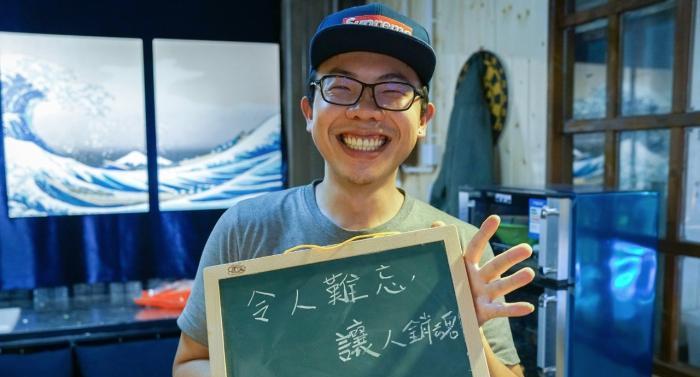 Supreme
令人難忘,
讓人銷魂